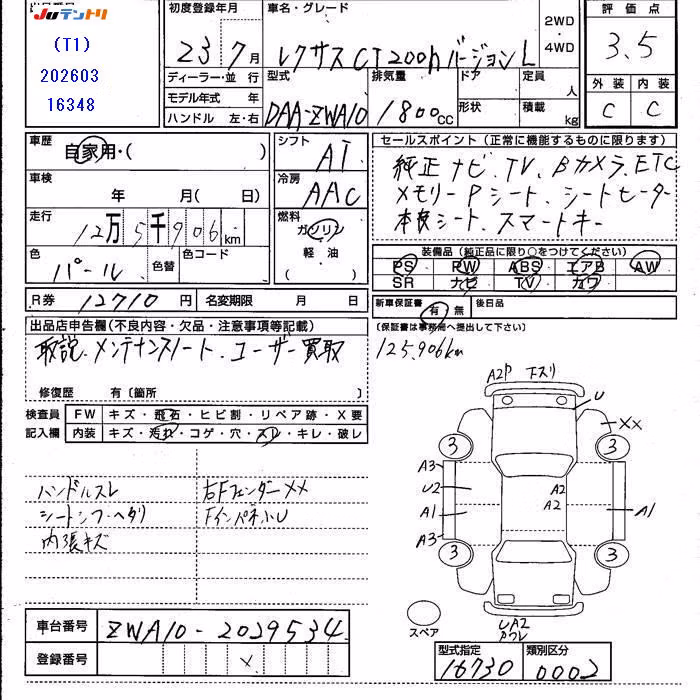 JUテントリ
(T1)
202603
16348
初度登録年月
23 7月
車名・グレード
レクサス CT200h バージョンL
2WD
・
4WD
評価点
3.5
外装 内装
C C
ディーラー・並行
モデル年式 年
ハンドル 左・右
型式
DAA-ZWA10
排気量
1800cc
ドア
形状
定員
人
積載
kg
車歴
自家用・( )
シフト
AT
車検
年 月( 日)
冷房
AAC
走行
12万5千906km
燃料
ガソリン
軽・油
( )
色
パール
色替
色コード
R券 12710円
名変期限 月 日
セールスポイント(正常に機能するものに限ります)
純正ナビ、TV、Bカメラ、ETC
メモリーPシート、シートヒーター
本革シート、スマートキー
装備品(純正品に限り○をつけてください)
PS PW ABS エアB AW
SR ナビ TV カワ
新車保証書 有・無
後日品
(保証書は事務局へ提出して下さい)
125,906km
出品店申告欄(不良内容・欠品・注意事項等記載)
取説、メンテナンスノート、ユーザー買取
修復歴 有〔箇所 〕
検査員
記入欄
FW キズ・飛石・ヒビ割・リペア跡・X要
内装 キズ・汚れ・コゲ・穴・スレ・キレ・破レ
ハンドルスレ
シートシワ・ヘタリ
内張キズ
右Fフェンダー XX
Fインパネ小U
A2P 下スリ
U
XX
3
3
A3
U2
A1
A3
A2
A2
A1
3
3
スペア
UA2
車台番号 ZWA10-2029534
登録番号
型式指定
16730
類別区分
0002